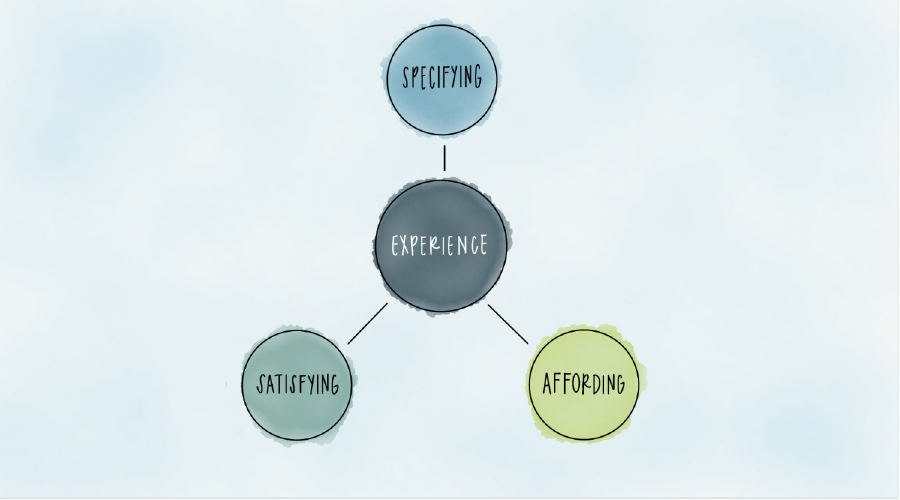 SPECIFYING
EXPERIENCE
SATISFYING
AFFORDING